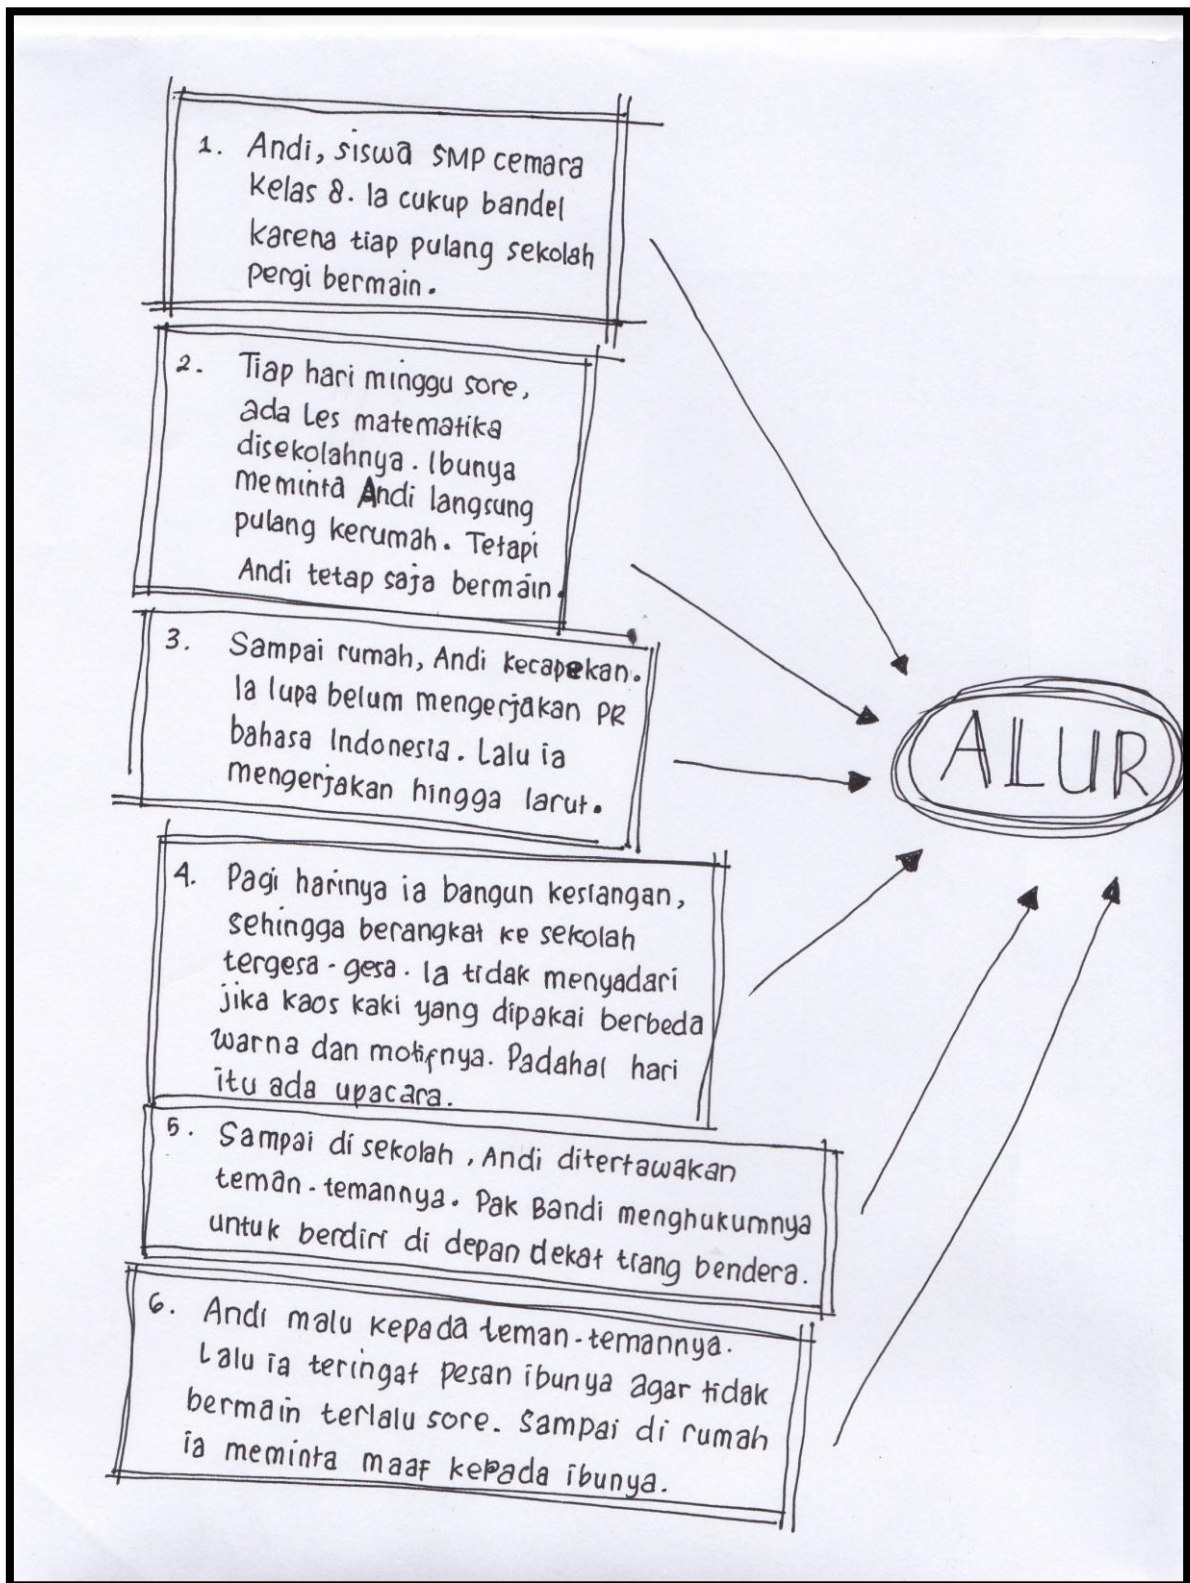 1. Andi, siswa SMP cemara
kelas 8. Ia cukup bandel
karena tiap pulang sekolah
pergi bermain.
2. Tiap hari minggu sore,
ada Les matematika
disekolahnya. Ibunya
meminta Andi langsung
pulang kerumah. Tetapi
Andi tetap saja bermain.
3. Sampai rumah, Andi kecapekan.
Ia lupa belum mengerjakan PR
bahasa Indonesia. Lalu ia
mengerjakan hingga larut.
4. Pagi harinya ia bangun kesiangan,
sehingga berangkat ke sekolah
tergesa-gesa. Ia tidak menyadari
jika kaos kaki yang dipakai berbeda
warna dan motifnya. Padahal hari
itu ada upacara.
5. Sampai di sekolah, Andi ditertawakan
teman-temannya. Pak Bandi menghukumnya
untuk berdiri di depan dekat tiang bendera.
6. Andi malu kepada teman-temannya.
Lalu ia teringat pesan ibunya agar tidak
bermain terlalu sore. Sampai di rumah
ia meminta maaf kepada ibunya.
ALUR